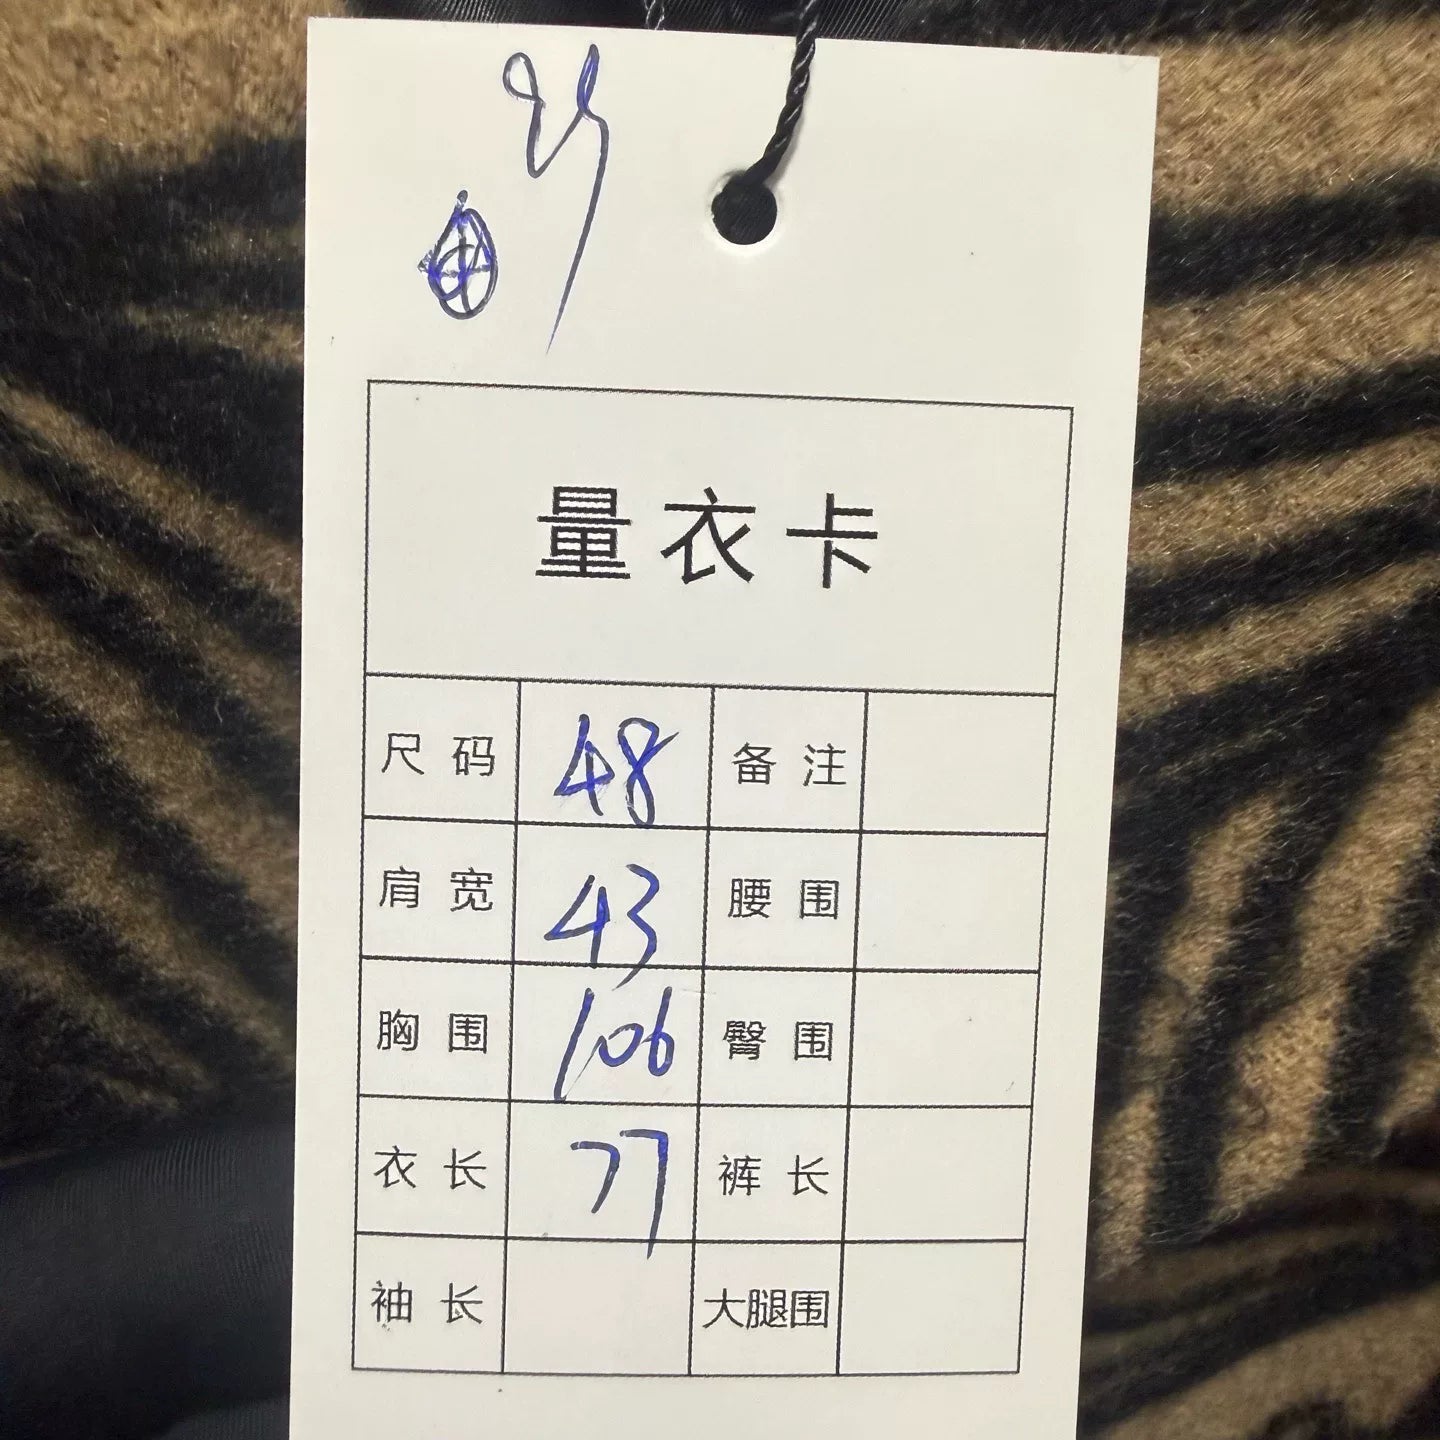 量衣卡
尺码 48 备注
肩宽 43 腰围
胸围 106 臀围
衣长 77 裤长
袖长 大腿围